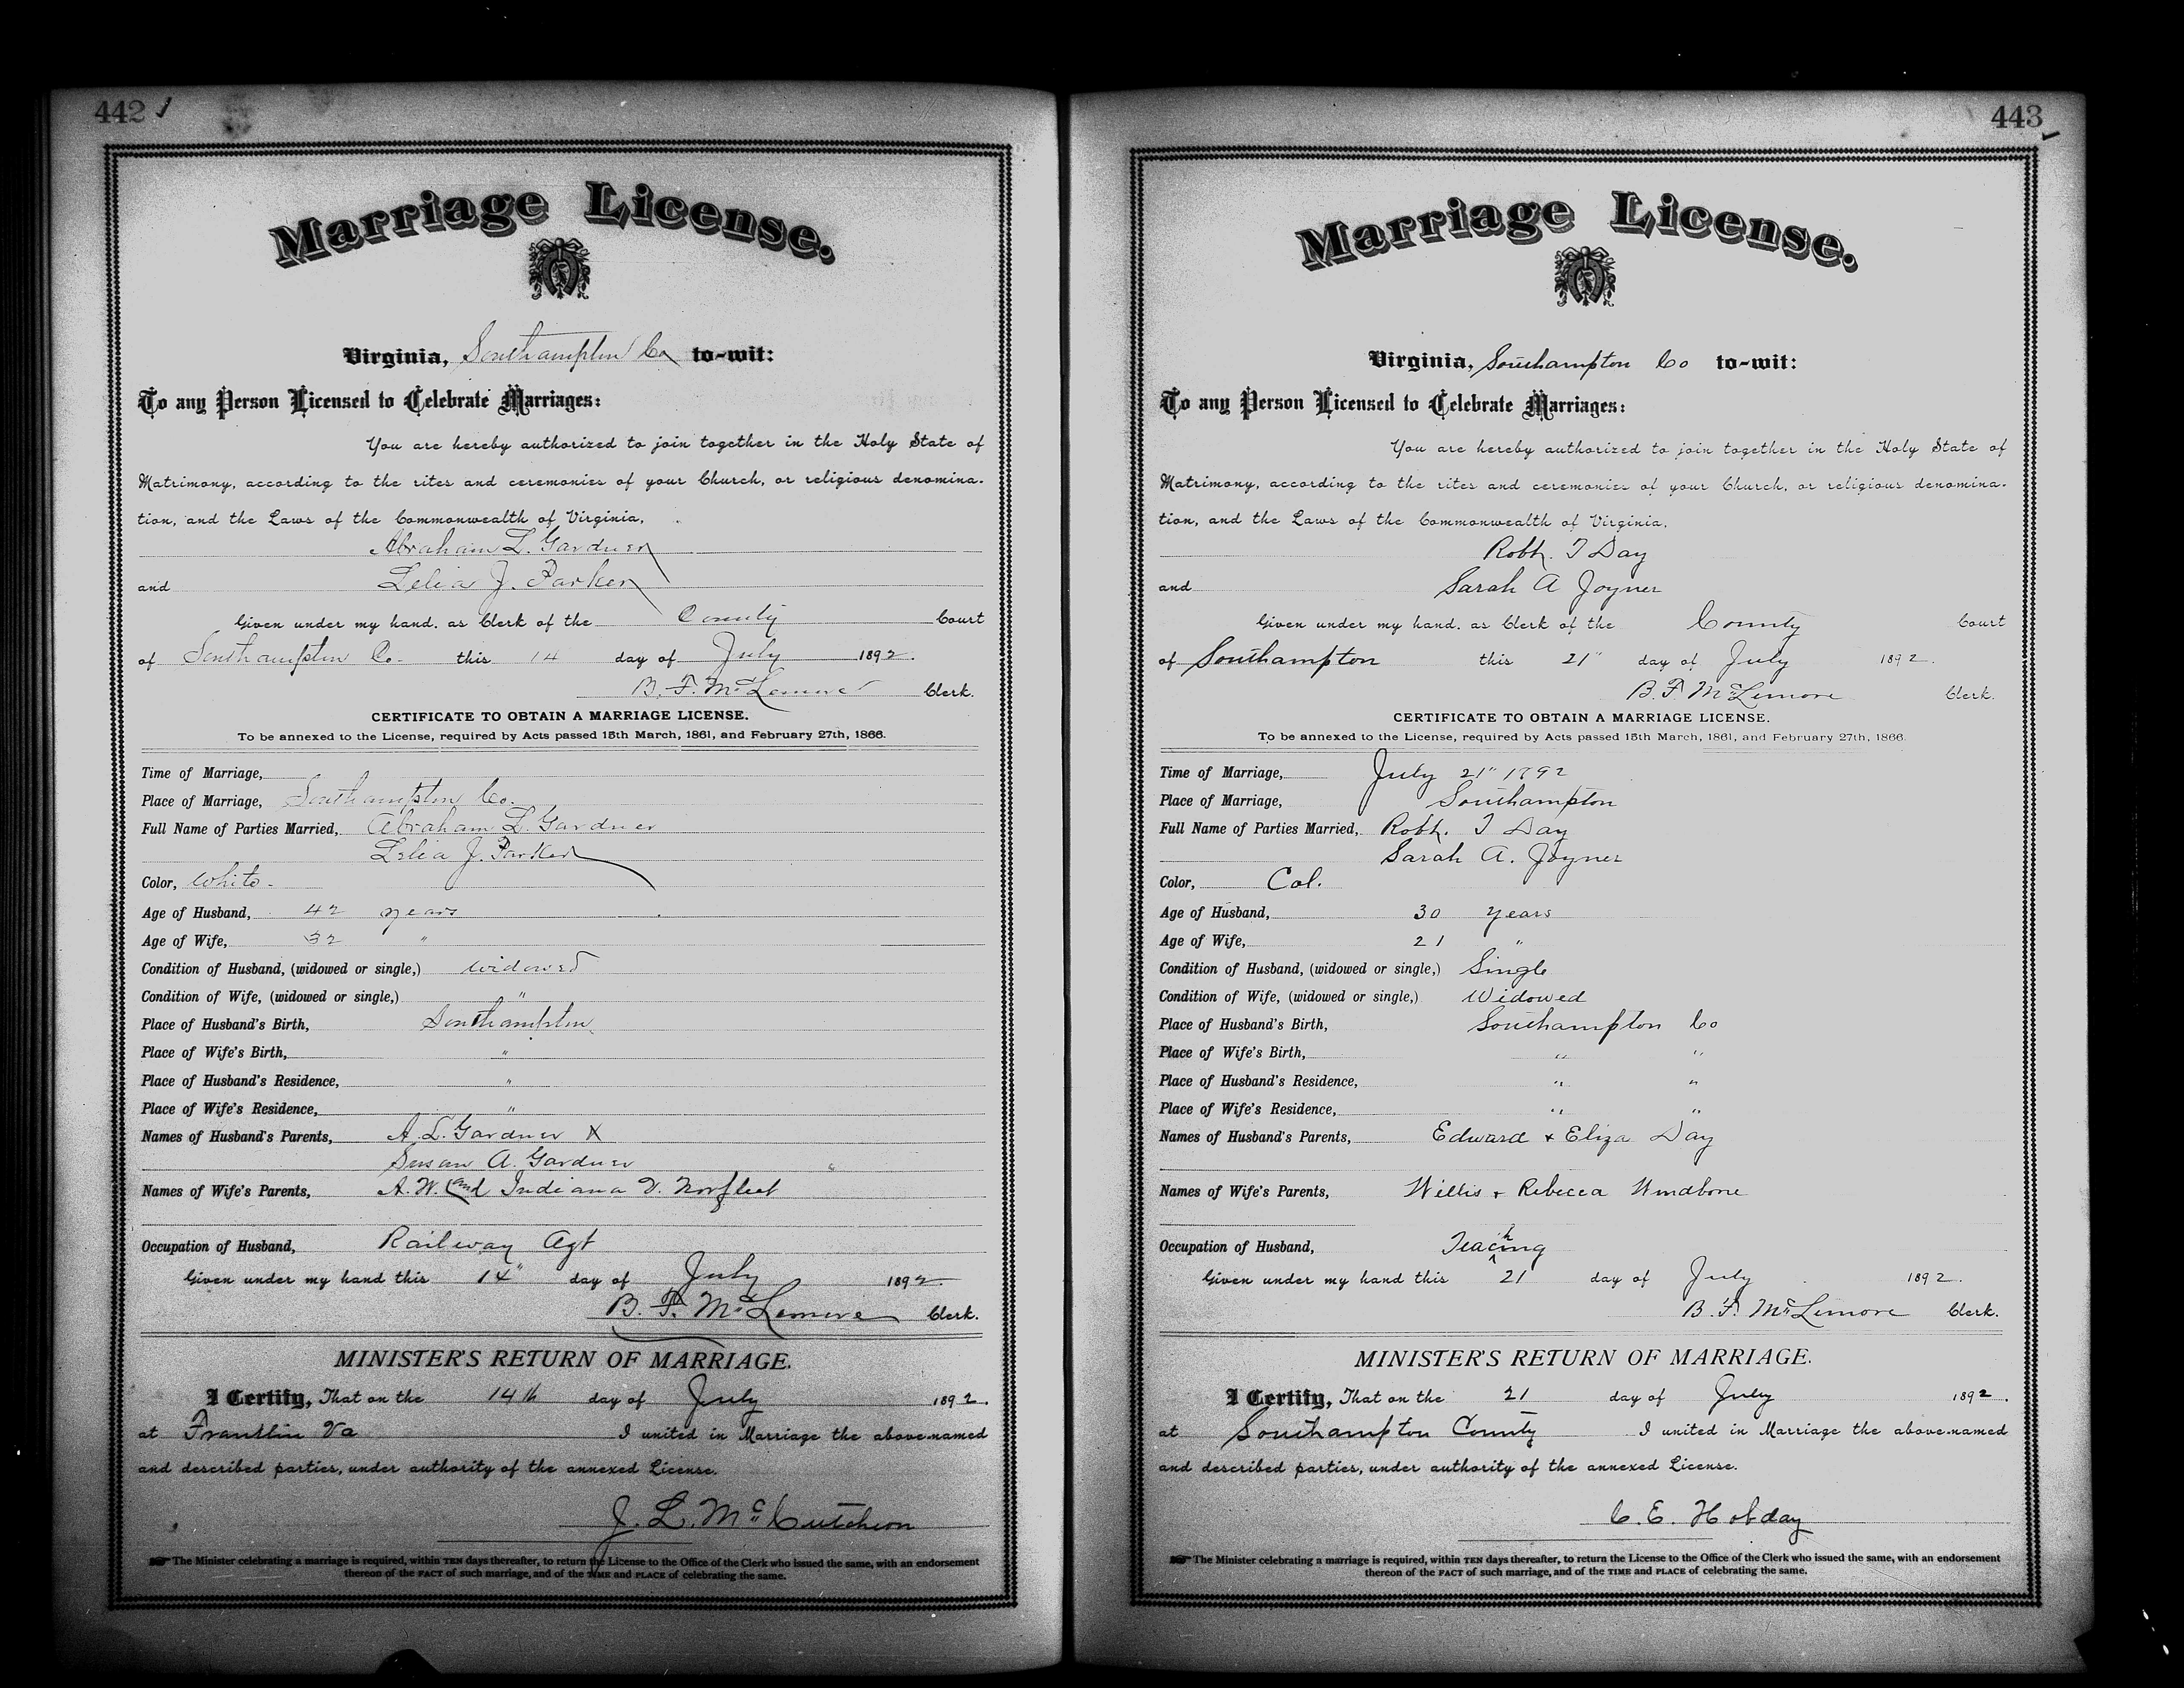 442
Marriage License.
Virginia, Southampton Co to-wit:
To any Person Licensed to Celebrate Marriages:
You are hereby authorized to join together in the Holy State of
Matrimony, according to the rites and ceremonies of your Church, or religious denomina-
tion, and the Laws of the Commonwealth of Virginia,
Abraham L. Gardner
and Lelia J. Parker
Given under my hand. as Clerk of the County Court
of Southampton Co. this 14 day of July 1892.
B. F. McLemore Clerk.
CERTIFICATE TO OBTAIN A MARRIAGE LICENSE.
To be annexed to the License, required by Acts passed 15th March, 1861, and February 27th, 1866.
Time of Marriage,
Place of Marriage, Southampton Co.
Full Name of Parties Married, Abraham L. Gardner
Lelia J. Parker
Color, White.
Age of Husband, 42 years
Age of Wife, 32 "
Condition of Husband, (widowed or single,) widowed
Condition of Wife, (widowed or single,) "
Place of Husband's Birth, Southampton
Place of Wife's Birth, "
Place of Husband's Residence, "
Place of Wife's Residence, "
Names of Husband's Parents, A. L. Gardner X
Susan A. Gardner
Names of Wife's Parents, A. W. and Indiana V. Norfleet
Occupation of Husband, Railway Agt
Given under my hand this 14" day of July 1892.
B. F. McLemore Clerk.
MINISTER'S RETURN OF MARRIAGE.
I Certify, That on the 14th day of July 1892.
at Franklin Va I united in Marriage the above-named
and described parties, under authority of the annexed License.
J. L. McCutcheon
The Minister celebrating a marriage is required, within TEN days thereafter, to return the License to the Office of the Clerk who issued the same, with an endorsement
thereon of the FACT of such marriage, and of the TIME and PLACE of celebrating the same.
443
Marriage License.
Virginia, Southampton Co to-wit:
To any Person Licensed to Celebrate Marriages:
You are hereby authorized to join together in the Holy State of
Matrimony, according to the rites and ceremonies of your Church, or religious denomina-
tion, and the Laws of the Commonwealth of Virginia,
Robt. T Day
and Sarah A Joyner
Given under my hand. as Clerk of the County Court
of Southampton this 21" day of July 1892.
B. F McLemore Clerk.
CERTIFICATE TO OBTAIN A MARRIAGE LICENSE.
To be annexed to the License, required by Acts passed 15th March, 1861, and February 27th, 1866.
Time of Marriage, July 21" 1892
Place of Marriage, Southampton
Full Name of Parties Married, Robt. T Day
Sarah A. Joyner
Color, Col.
Age of Husband, 30 years
Age of Wife, 21 "
Condition of Husband, (widowed or single,) Single
Condition of Wife, (widowed or single,) Widowed
Place of Husband's Birth, Southampton Co
Place of Wife's Birth, " "
Place of Husband's Residence, " "
Place of Wife's Residence, " "
Names of Husband's Parents, Edward + Eliza Day
Names of Wife's Parents, Willis + Rebecca
Occupation of Husband, Teaching
Given under my hand this 21 day of July 1892.
B. F. McLemore Clerk.
MINISTER'S RETURN OF MARRIAGE.
I Certify, That on the 21 day of July 1892.
at Southampton County I united in Marriage the above-named
and described parties, under authority of the annexed License.
C. E. Hobday
The Minister celebrating a marriage is required, within TEN days thereafter, to return the License to the Office of the Clerk who issued the same, with an endorsement
thereon of the FACT of such marriage, and of the TIME and PLACE of celebrating the same.